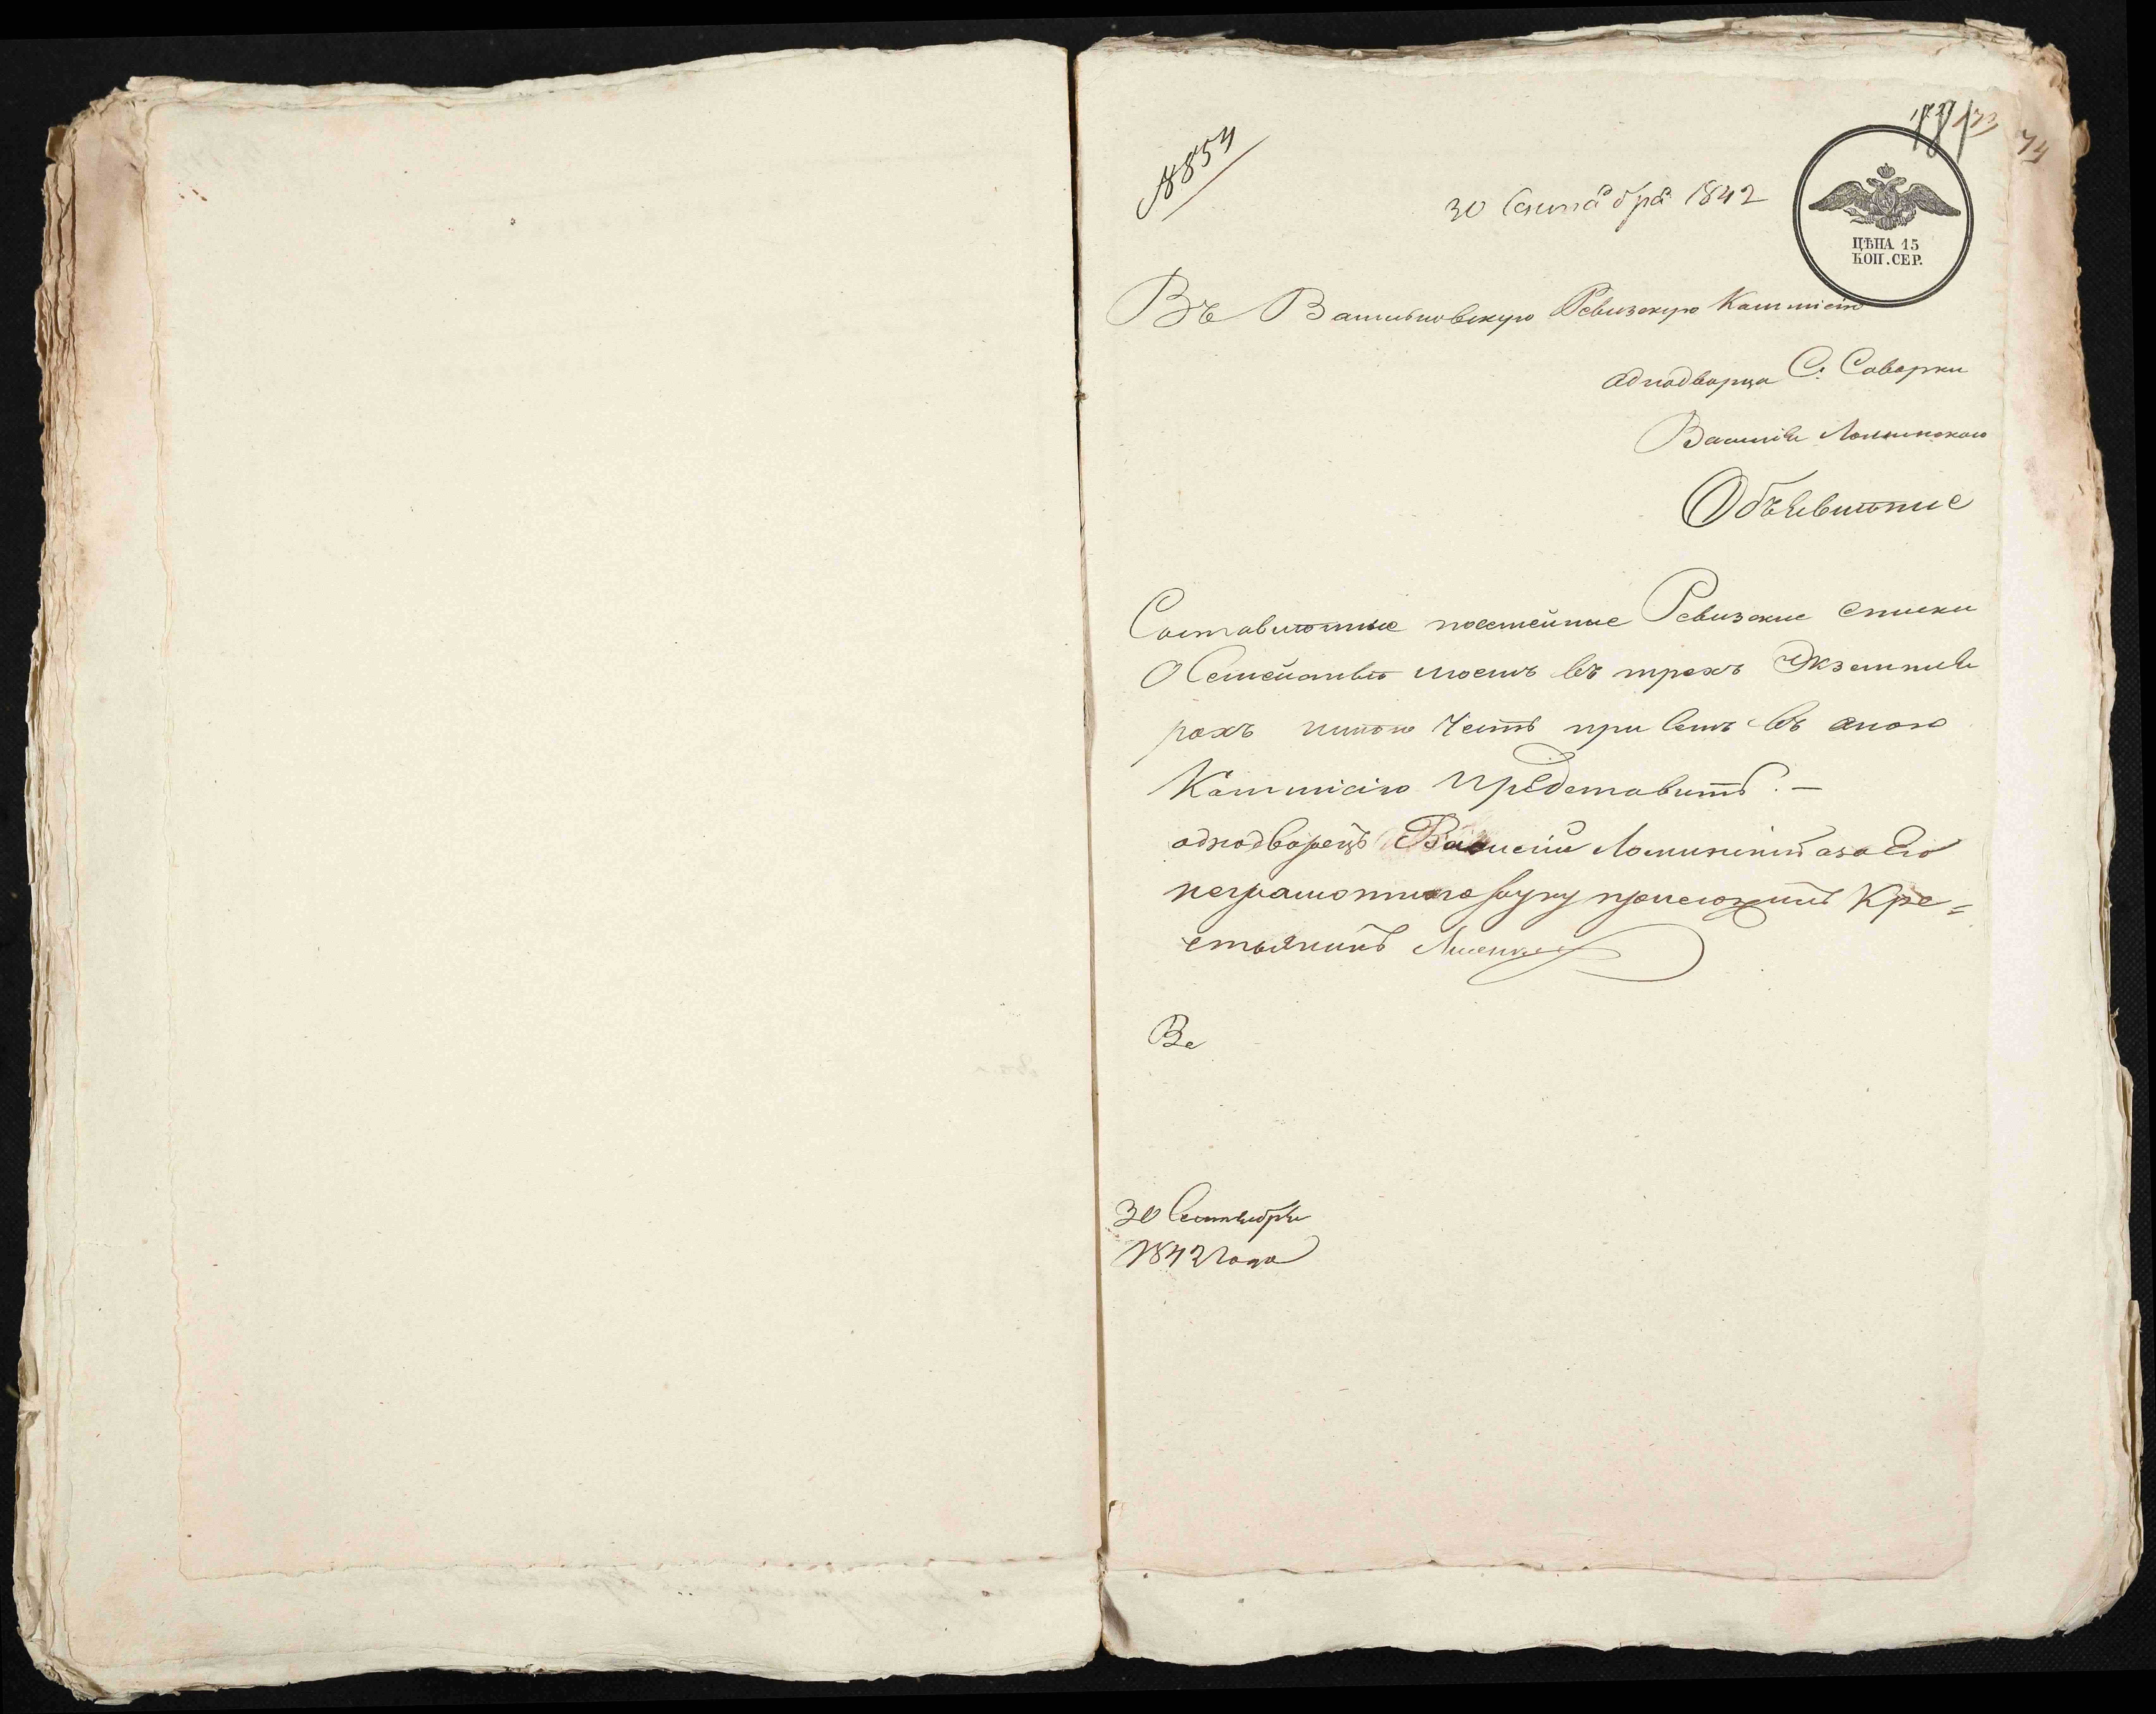 8854
173
74
30 Сентября 1842
ЦѢНА 15
КОП. СЕР.
Въ Васильковскую Ревизскую Каммисію
однодворца С. Саварки
Василія
Объявленіе
Составленные посемейные Ревизскіе списки
О Семействѣ моемъ въ трехъ Экземпля
рахъ имѣю Честь при семъ въ оною
Каммисію представить. —
однодворецъ Василій а за Его
неграмотнаго руку приложилъ Кре=
стьянинъ
Ве
30 Сентября
1842 года